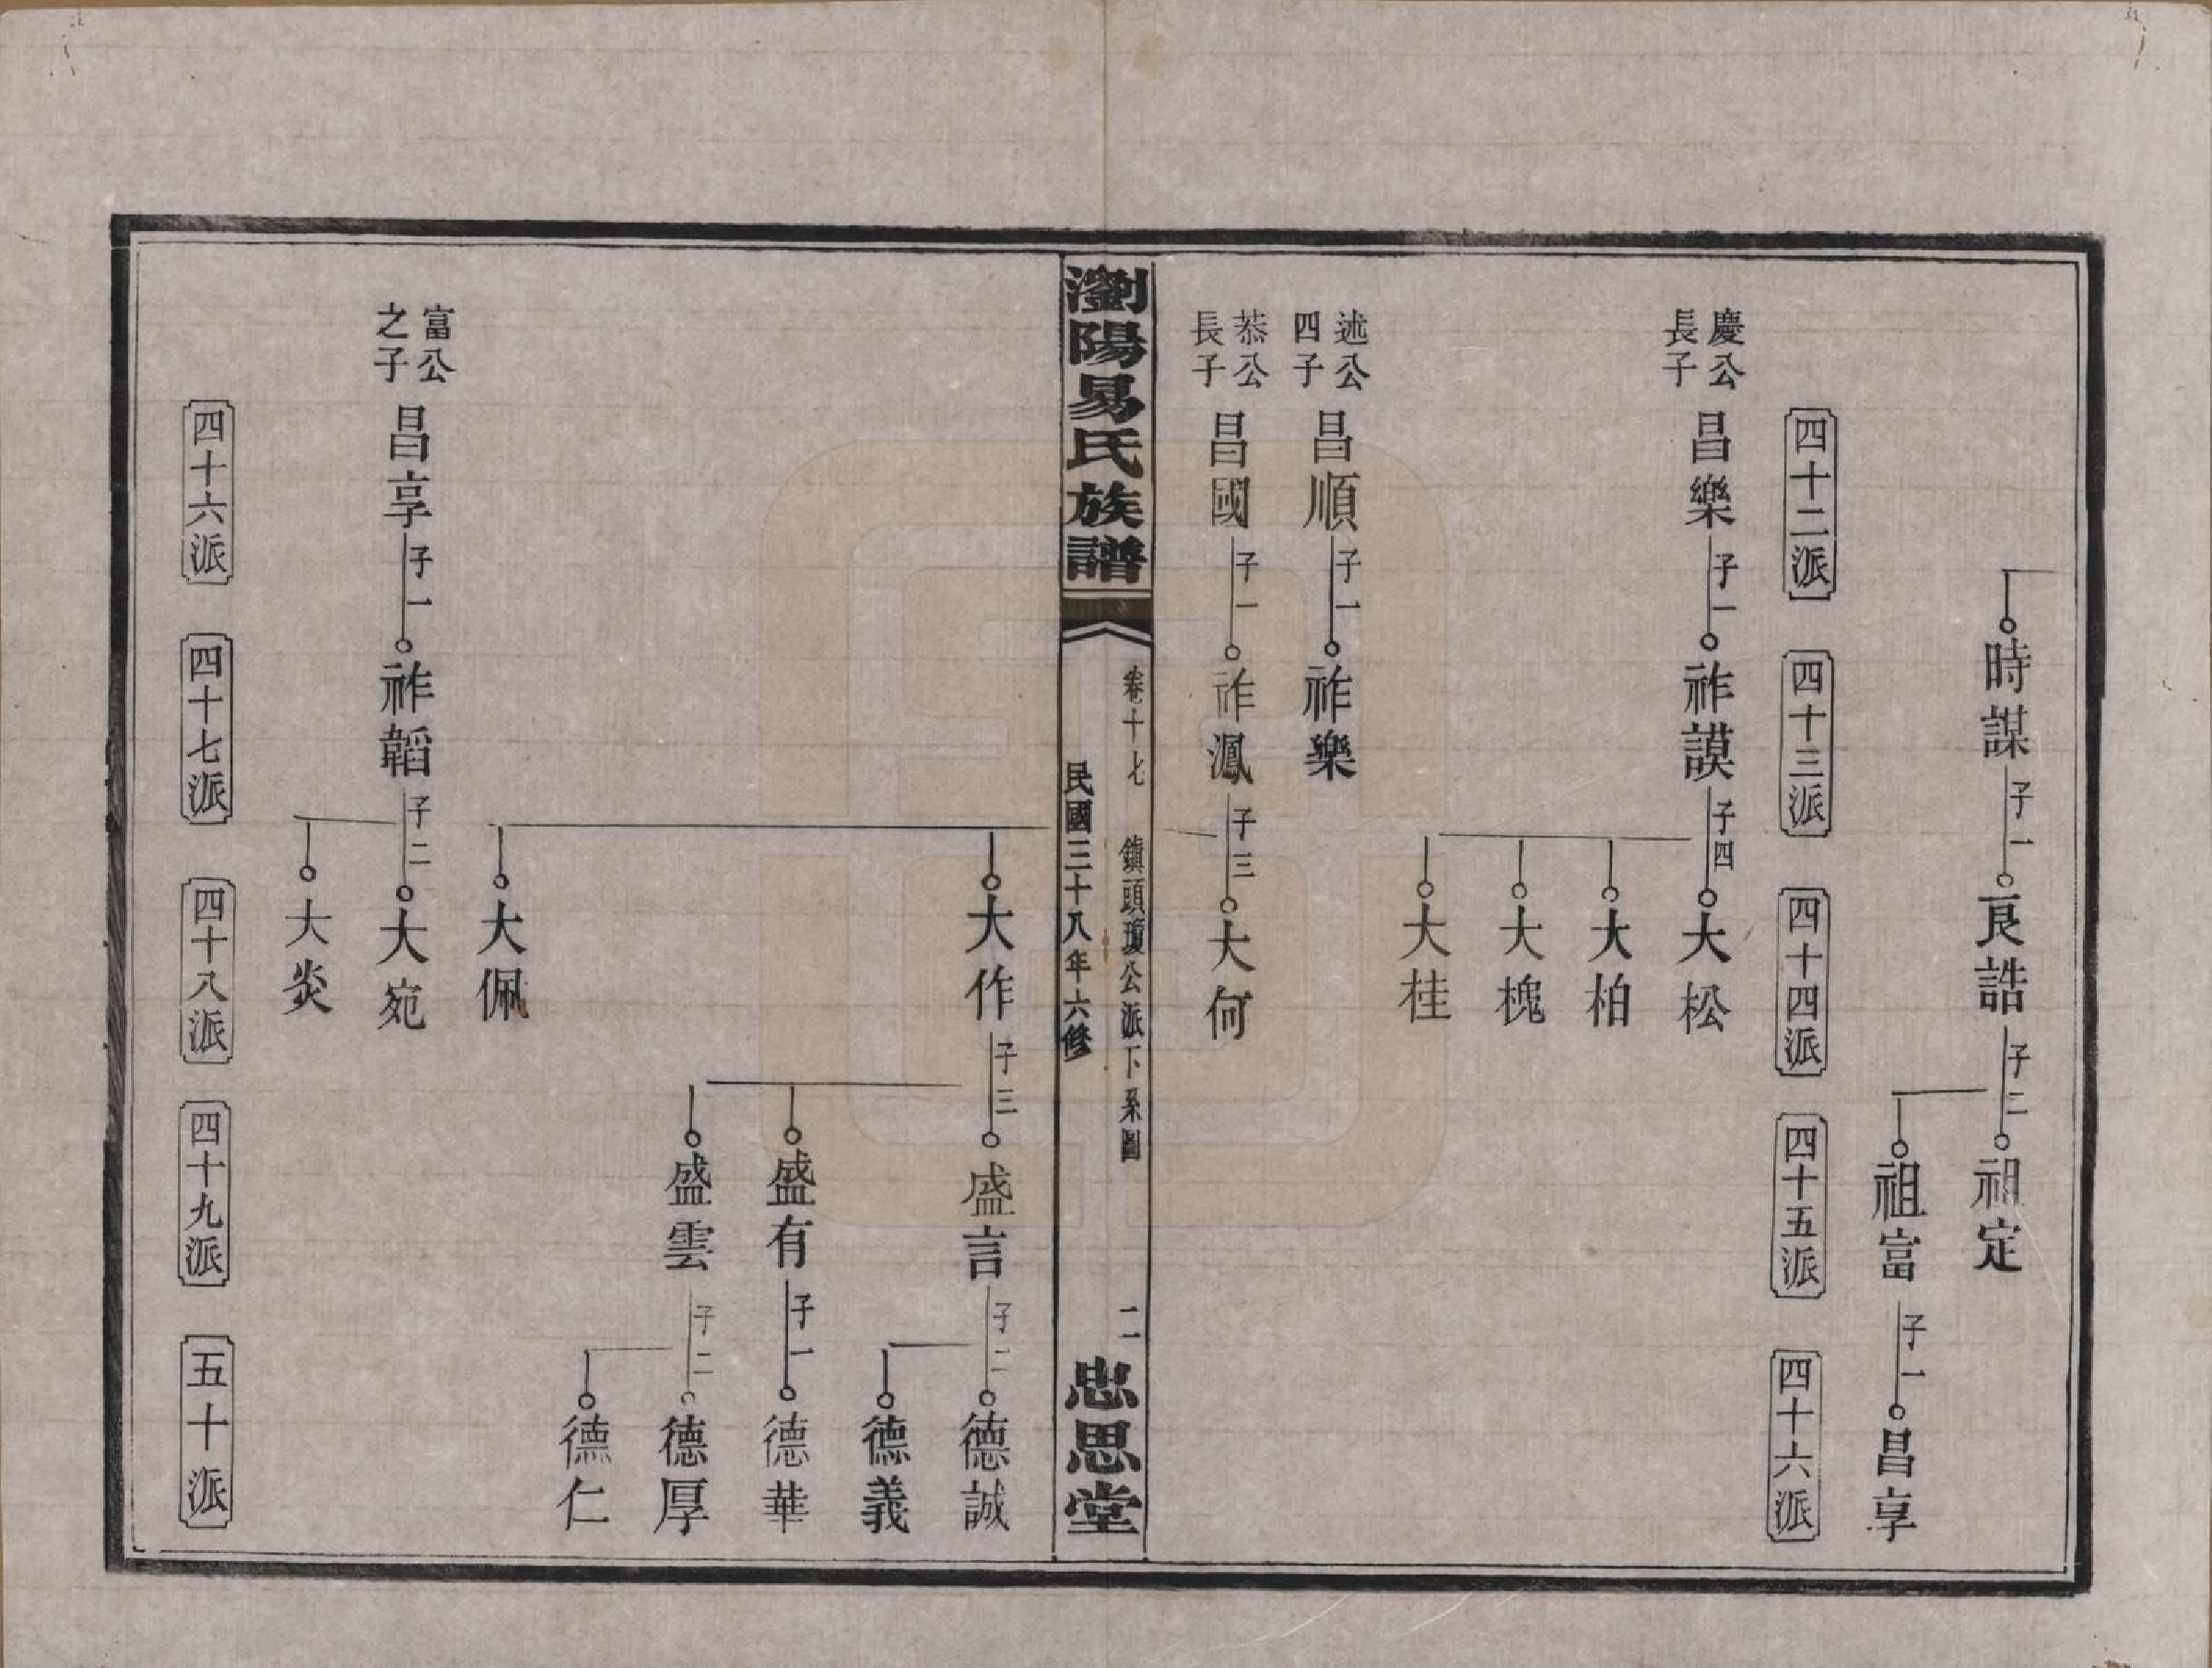 時謀
子一
良誥
子二
祖定
祖富
子一
昌享
四十二派
四十三派
四十四派
四十五派
四十六派
慶公
長子
昌樂
子一
祚謨
子四
大松
大柏
大槐
大桂
述公
四子
昌順
子一
祚樂
恭公
長子
昌國
子一
祚鳳
子三
大何
瀏陽易氏族譜
卷十七
鎮頭瓊公派下系圖
二
民國三十八年六修
忠思堂
大作
子三
盛言
子二
德誠
德義
盛有
子一
德華
盛雲
子二
德厚
德仁
大佩
富公
之子
昌享
子一
祚韜
子二
大宛
大炎
四十六派
四十七派
四十八派
四十九派
五十派